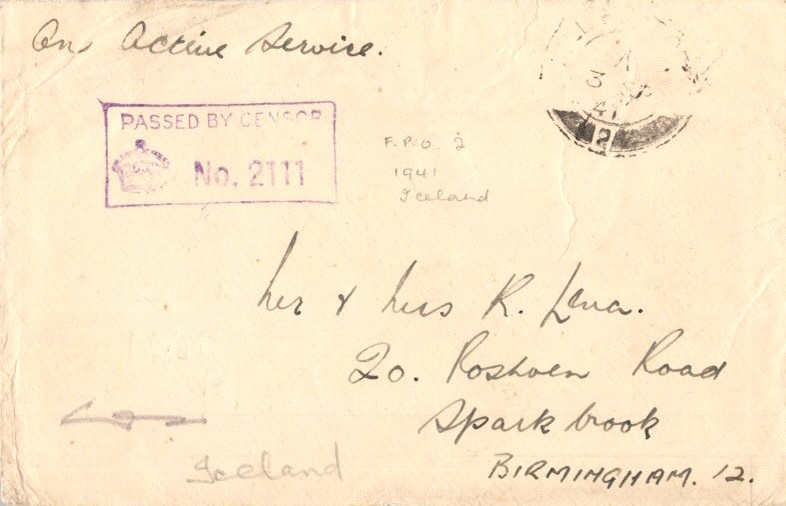 On Active Service.
PASSED BY CENSOR
No. 2111
3
41
2
F.P.O. 2
1941
Iceland
Mr & Mrs R. Lena.
20. Roshven Road
Sparkbrook
BIRMINGHAM. 12.
Iceland